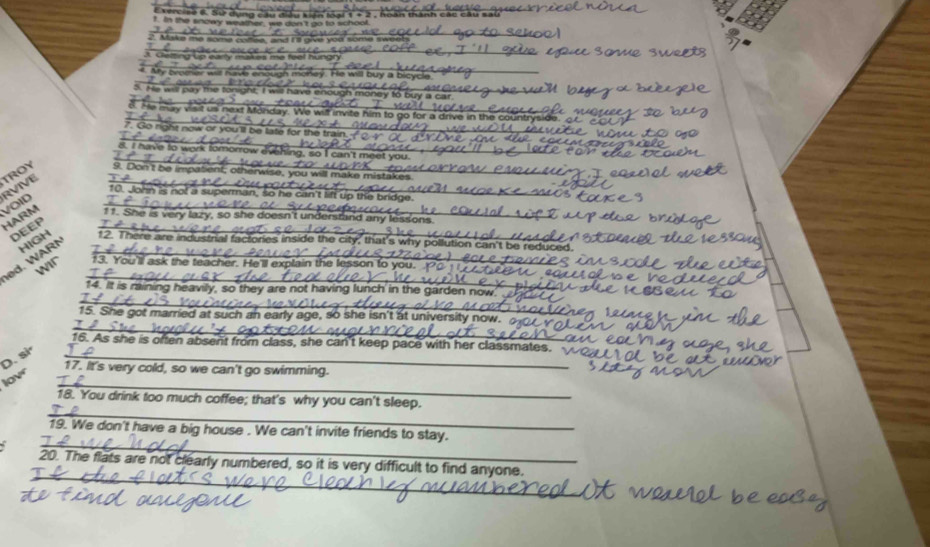 Exercise 8. Sử dụng câu điều kiện loại 1 + 2, hoàn thành các câu sau
1. In the snowy weather, we don't go to school.
If it weren't snowy we could go to school
2. Make me some coffee, and I'll give you some sweets
If you make me some coffee, I'll give you some sweets
3. Getting up early makes me feel hungry.
If I get up early I feel hungry
4. My brother will have enough money. He will buy a bicycle.
If my brother has enough money he will buy a bicycle
5. He will pay me tonight; I will have enough money to buy a car.
If he pays me tonight I will have enough money to buy a car
6. He may visit us next Monday. We will invite him to go for a drive in the countryside.
If he visits us next monday we will invite him to go for a drive on the countryside
7. Go right now or you'll be late for the train.
If you don't go right now, you'll be late for the train
8. I have to work tomorrow evening, so I can't meet you.
If I didn't have to work tomorrow evening, I could meet you
9. Don't be impatient; otherwise, you will make mistakes.
If you are impatient you will make mistakes
10. John is not a superman, so he can't lift up the bridge.
If John were a superman he could lift up the bridge
11. She is very lazy, so she doesn't understand any lessons.
If she were not so lazy, she would understand the lessons
12. There are industrial factories inside the city, that's why pollution can't be reduced.
If there were industrial factories inside the city pollution could be reduced
13. You'll ask the teacher. He'll explain the lesson to you.
If you ask the teacher he will explain the lesson to you
14. It is raining heavily, so they are not having lunch in the garden now.
If it is raining heavily, they are not having lunch in the garden now
15. She got married at such an early age, so she isn't at university now.
If she hadn't gotten married at such an early age, she would be at university now
16. As she is often absent from class, she can't keep pace with her classmates.
If
17. It's very cold, so we can't go swimming.
If
18. You drink too much coffee; that's why you can't sleep.
If
19. We don't have a big house . We can't invite friends to stay.
If we had
20. The flats are not clearly numbered, so it is very difficult to find anyone.
If the flats were clearly numbered it would be easy
to find anyone
TROY
VOID
HARM
DEEP
HIGH
WARN